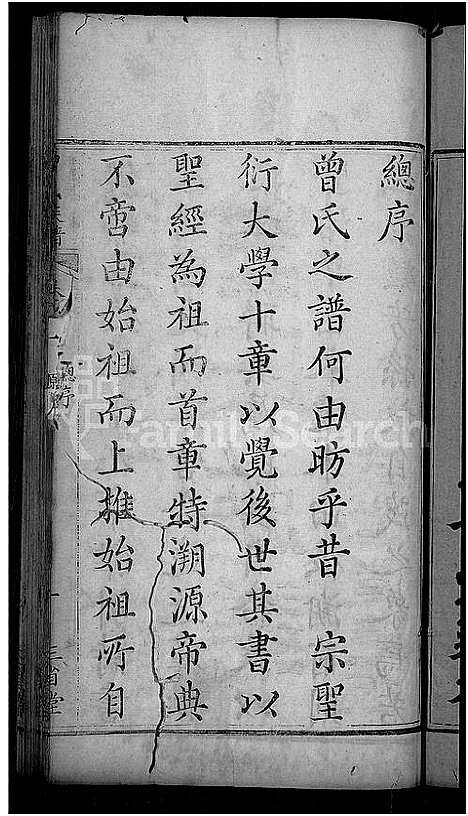 總序
曾氏之譜何由昉乎昔 宗聖
衍大學十章以覺後世其書以
聖經為祖而首章特溯源帝典
不啻由始祖而上推始祖所自
總序
三省堂
FamilySearch